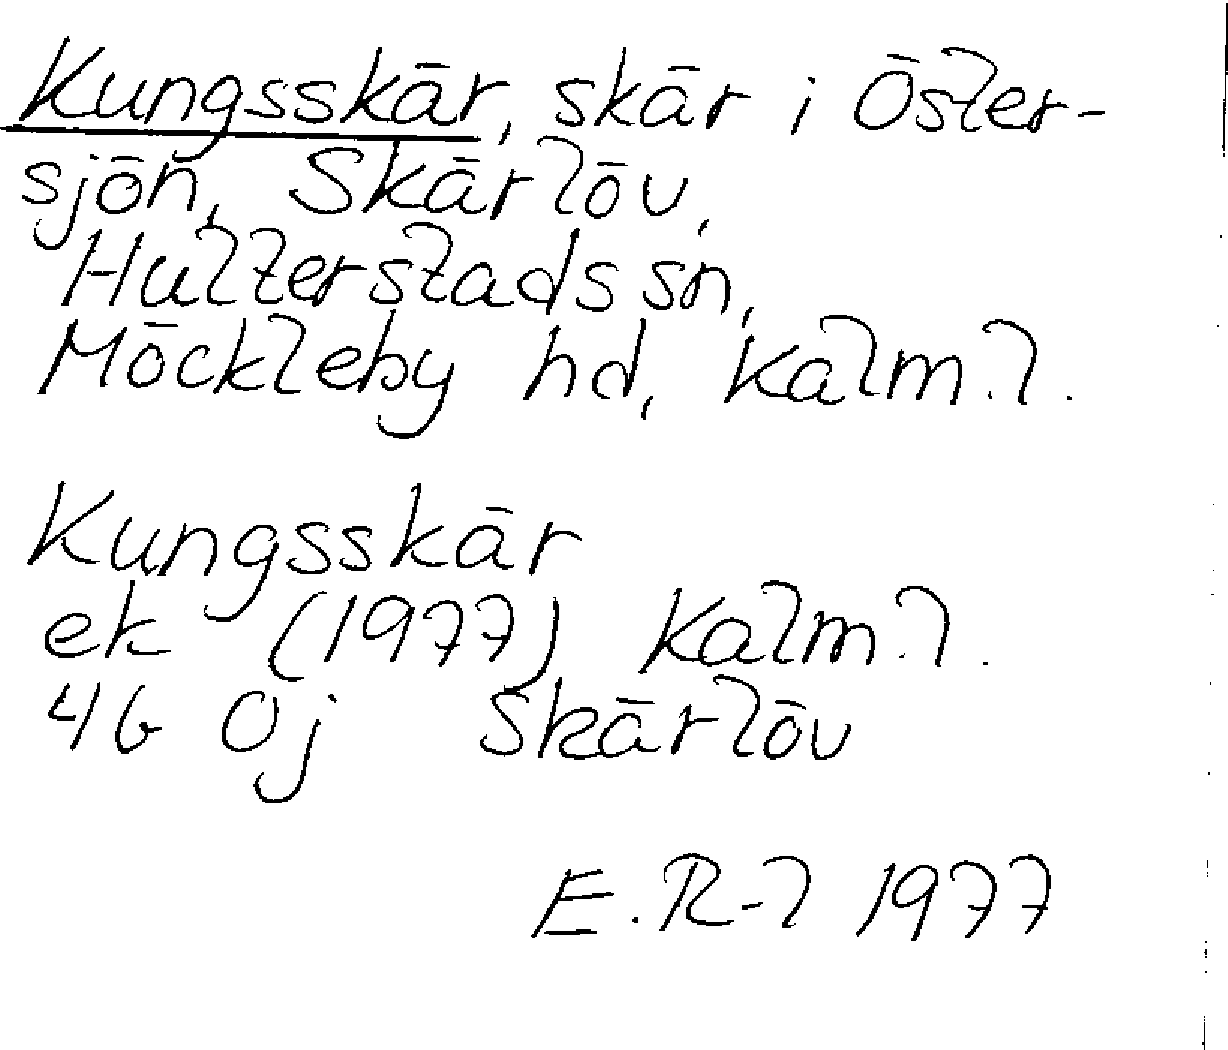 Kungsskär, skär i Öster-
sjön, Skärlöv,
Hulterstads sn,
Möckleby hd, Kalm.l.
Kungsskär
ek (1977) Kalm.l.
4G 0j Skärlöv
E.R-l 1977